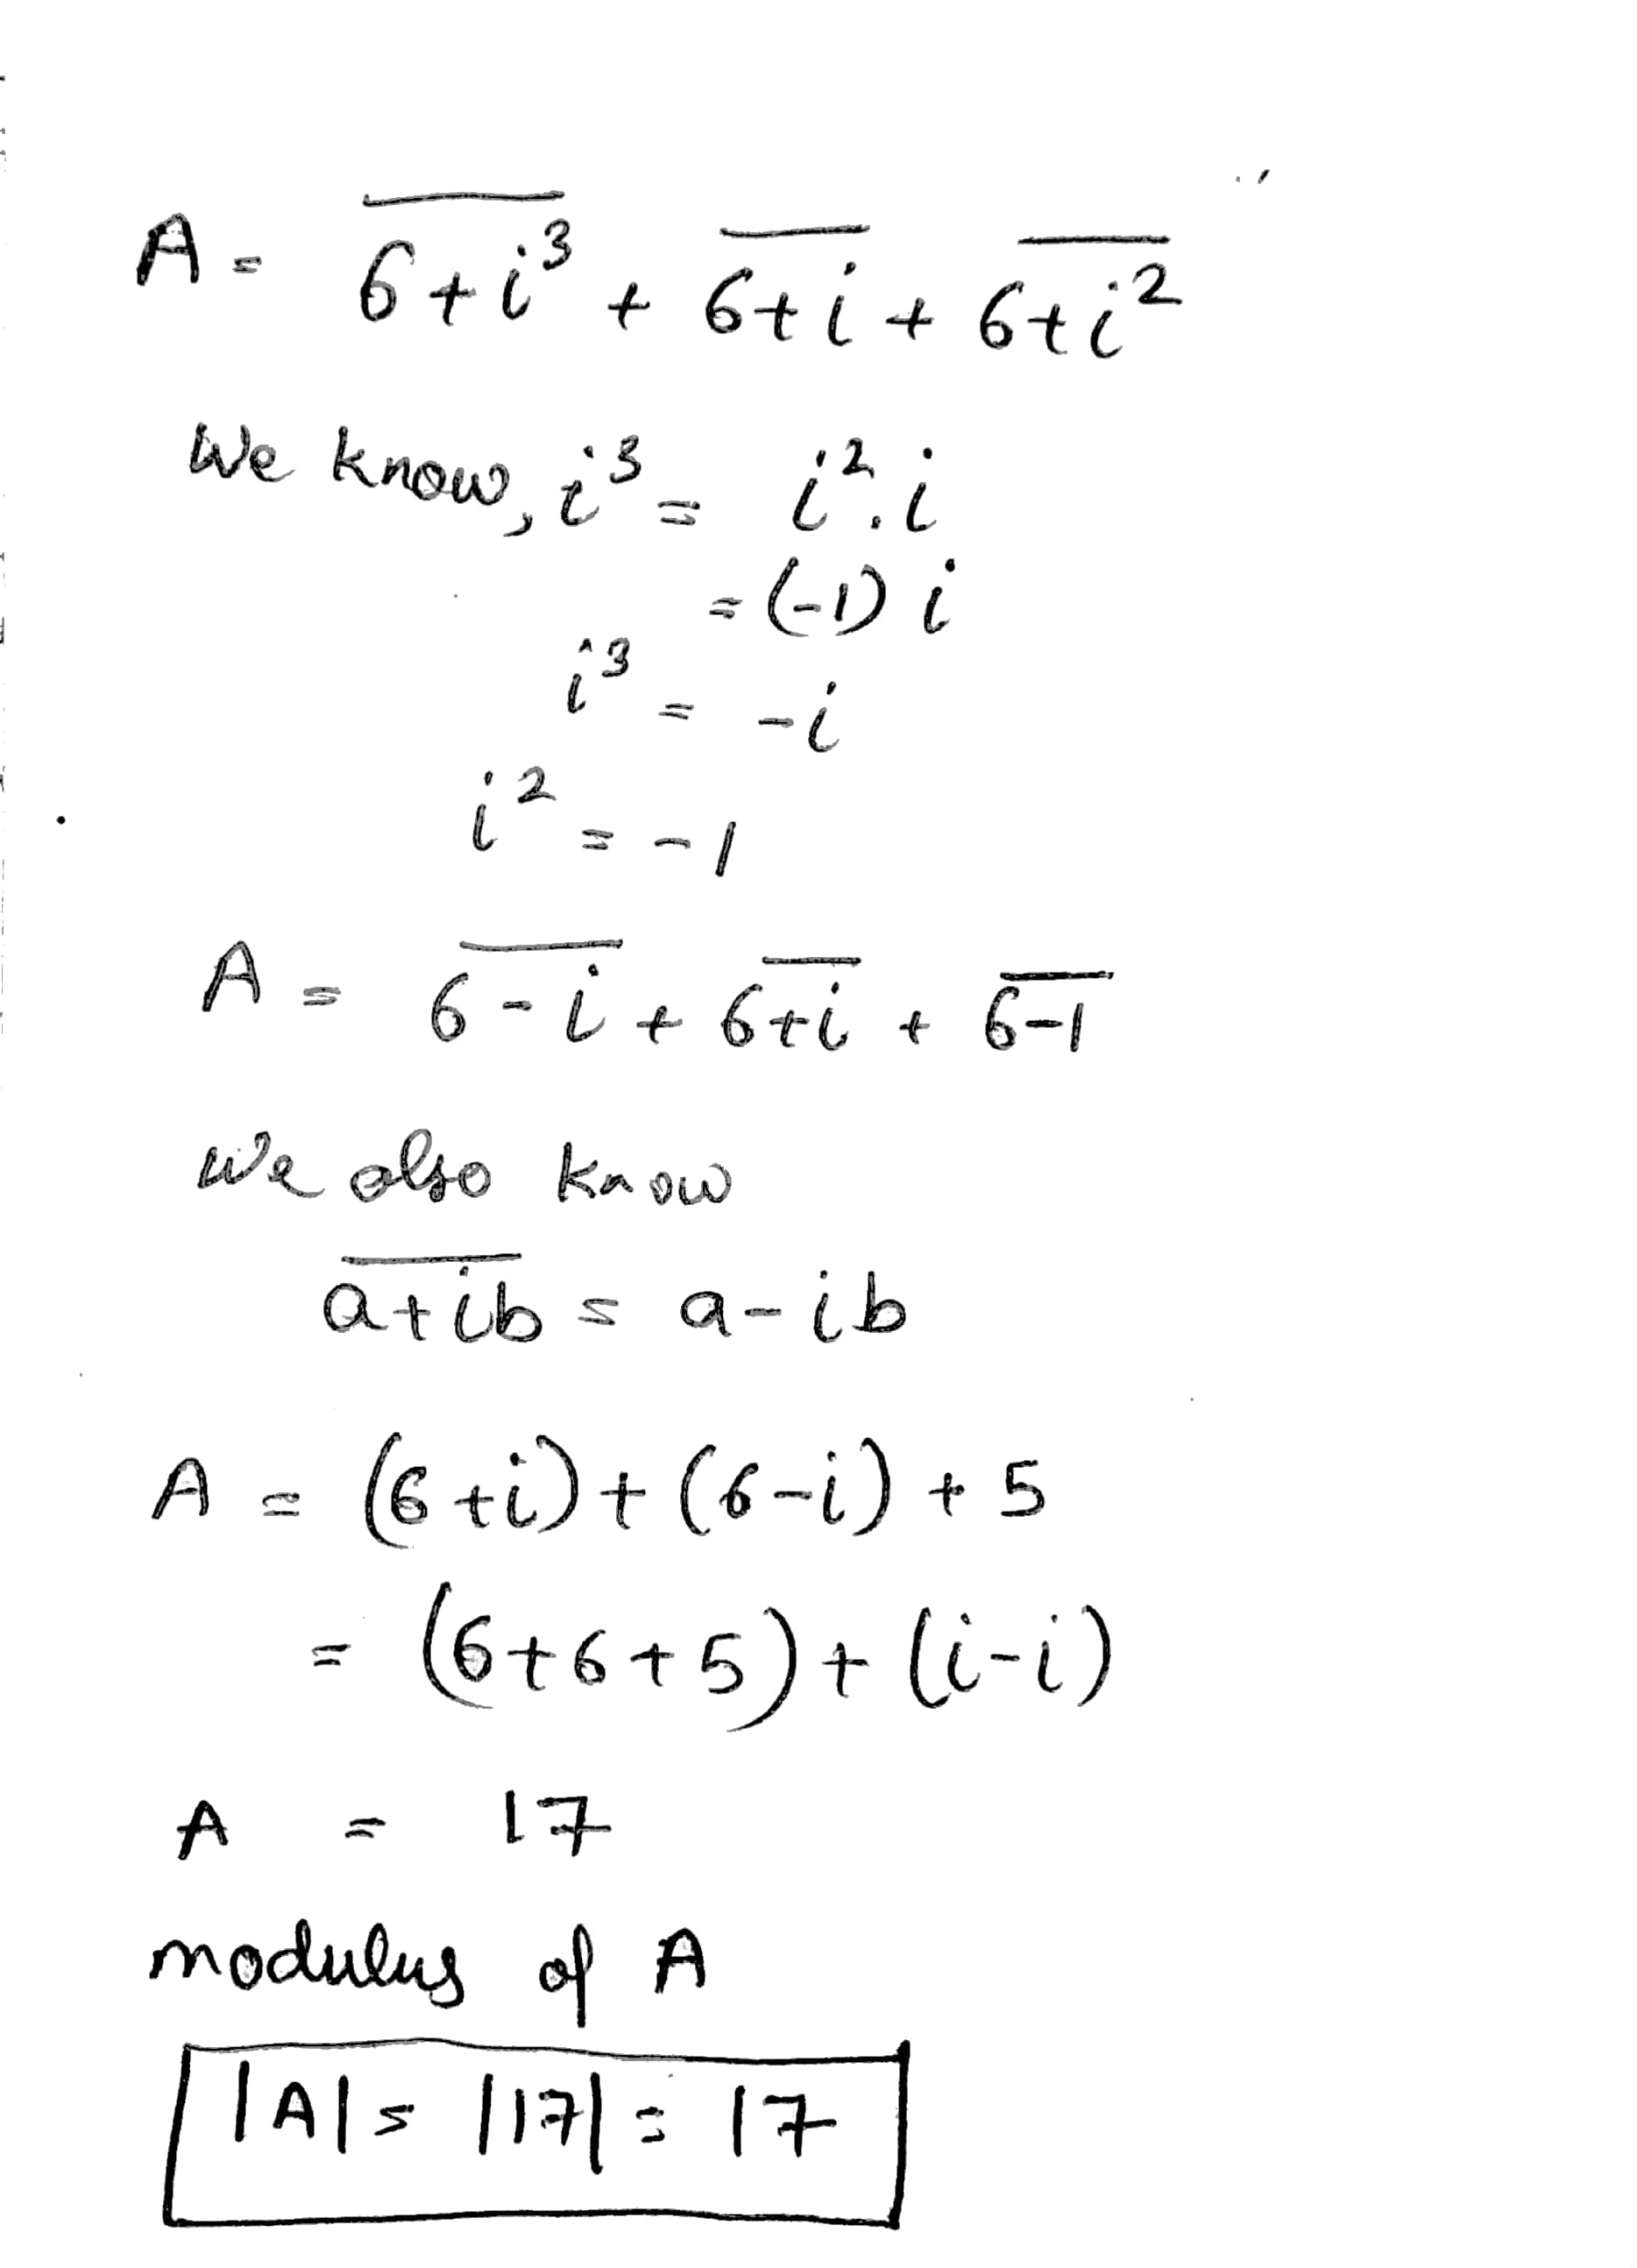 A = \overline{6+i^3} + \overline{6+i} + \overline{6+i^2}
We know, i^3 = i^2.i
= (-1) i
i^3 = -i
i^2 = -1
A = \overline{6-i} + \overline{6+i} + \overline{6-1}
We also know
\overline{a+ib} = a-ib
A = (6+i)+(6-i)+5
= (6+6+5)+(i-i)
A = 17
modulus of A
|A| = |17| = 17